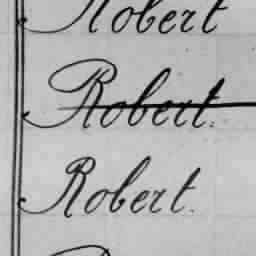 Robert
Robert.
Robert.